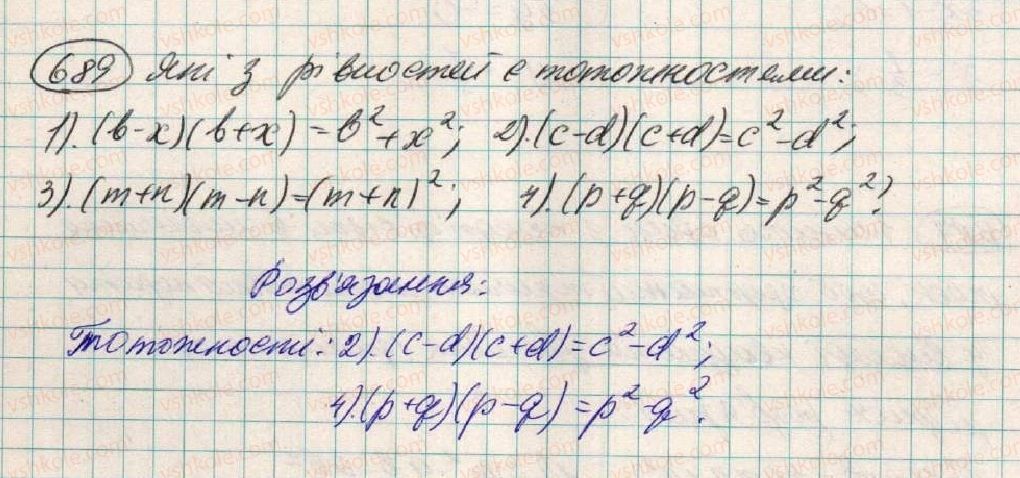 689 Які з рівностей є тотожностями:
1). (b-x)(b+x)=b²+x²; 2). (c-d)(c+d)=c²-d²;
3). (m+n)(m-n)=(m+n)²; 4). (p+q)(p-q)=p²-q²?
Розв'язання:
Тотожності: 2). (c-d)(c+d)=c²-d²;
4). (p+q)(p-q)=p²-q².